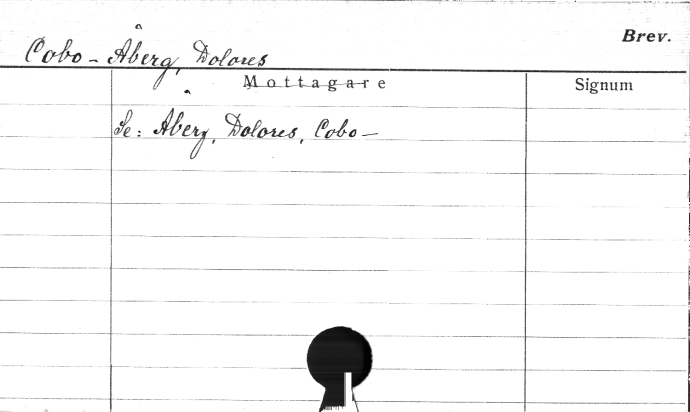 Brev.
Cobo - Åberg, Dolores
Mottagare Signum
Se: Åberg, Dolores, Cobo -